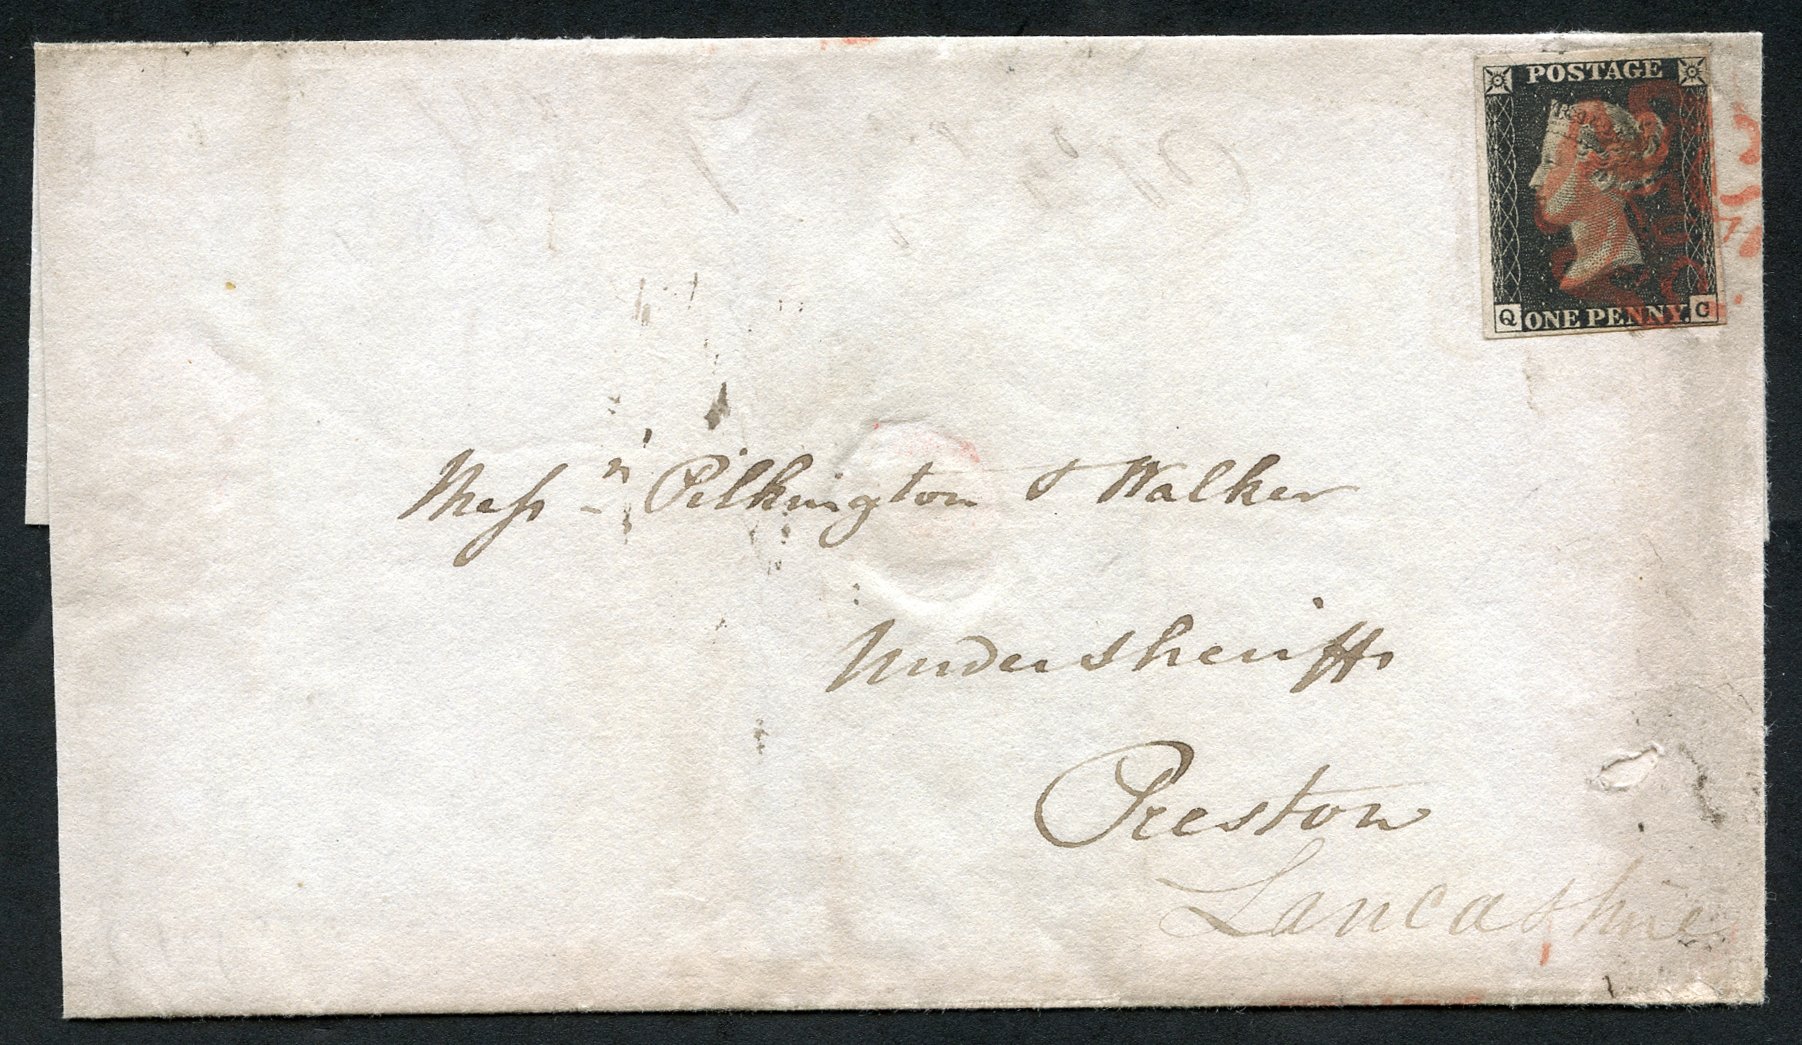 POSTAGE
Q ONE PENNY. C
Messrs Pilkington & Walker
Undersheriffs
Preston
Lancashire